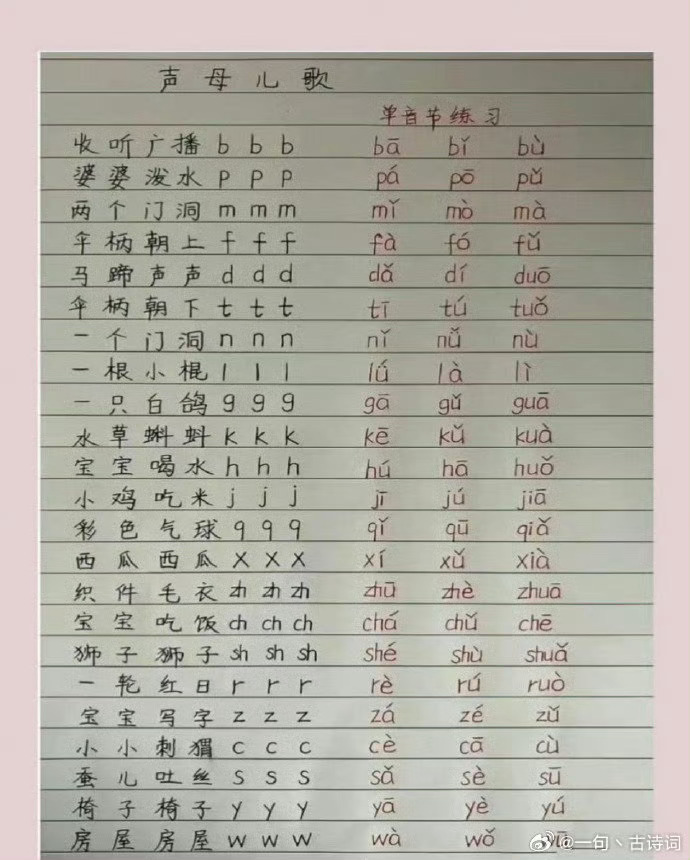 声母儿歌
单音节练习
收听广播 b b b bā bǐ bù
婆婆泼水 p p p pá pō pǔ
两个门洞 m m m mǐ mò mà
伞柄朝上 f f f fà fó fǔ
马蹄声声 d d d dǎ dí duō
伞柄朝下 t t t tī tú tuǒ
一个门洞 n n n nǐ nǚ nù
一根小棍 l l l lǘ là lì
一只白鸽 g g g gā gǔ guā
水草蝌蚪 k k k kē kǔ kuà
宝宝喝水 h h h hú hā huǒ
小鸡吃米 j j j jī jú jiā
彩色气球 q q q qǐ qū qiǎ
西瓜西瓜 x x x xí xǔ xià
织件毛衣 zh zh zh zhū zhè zhuā
宝宝吃饭 ch ch ch chá chǔ chē
狮子狮子 sh sh sh shé shù shuǎ
一轮红日 r r r rè rú ruò
宝宝写字 z z z zá zé zǔ
小小刺猬 c c c cè cā cù
蚕儿吐丝 s s s sǎ sè sū
椅子椅子 y y y yā yè yú
房屋房屋 w w w wà wǒ
@一句丶古诗词